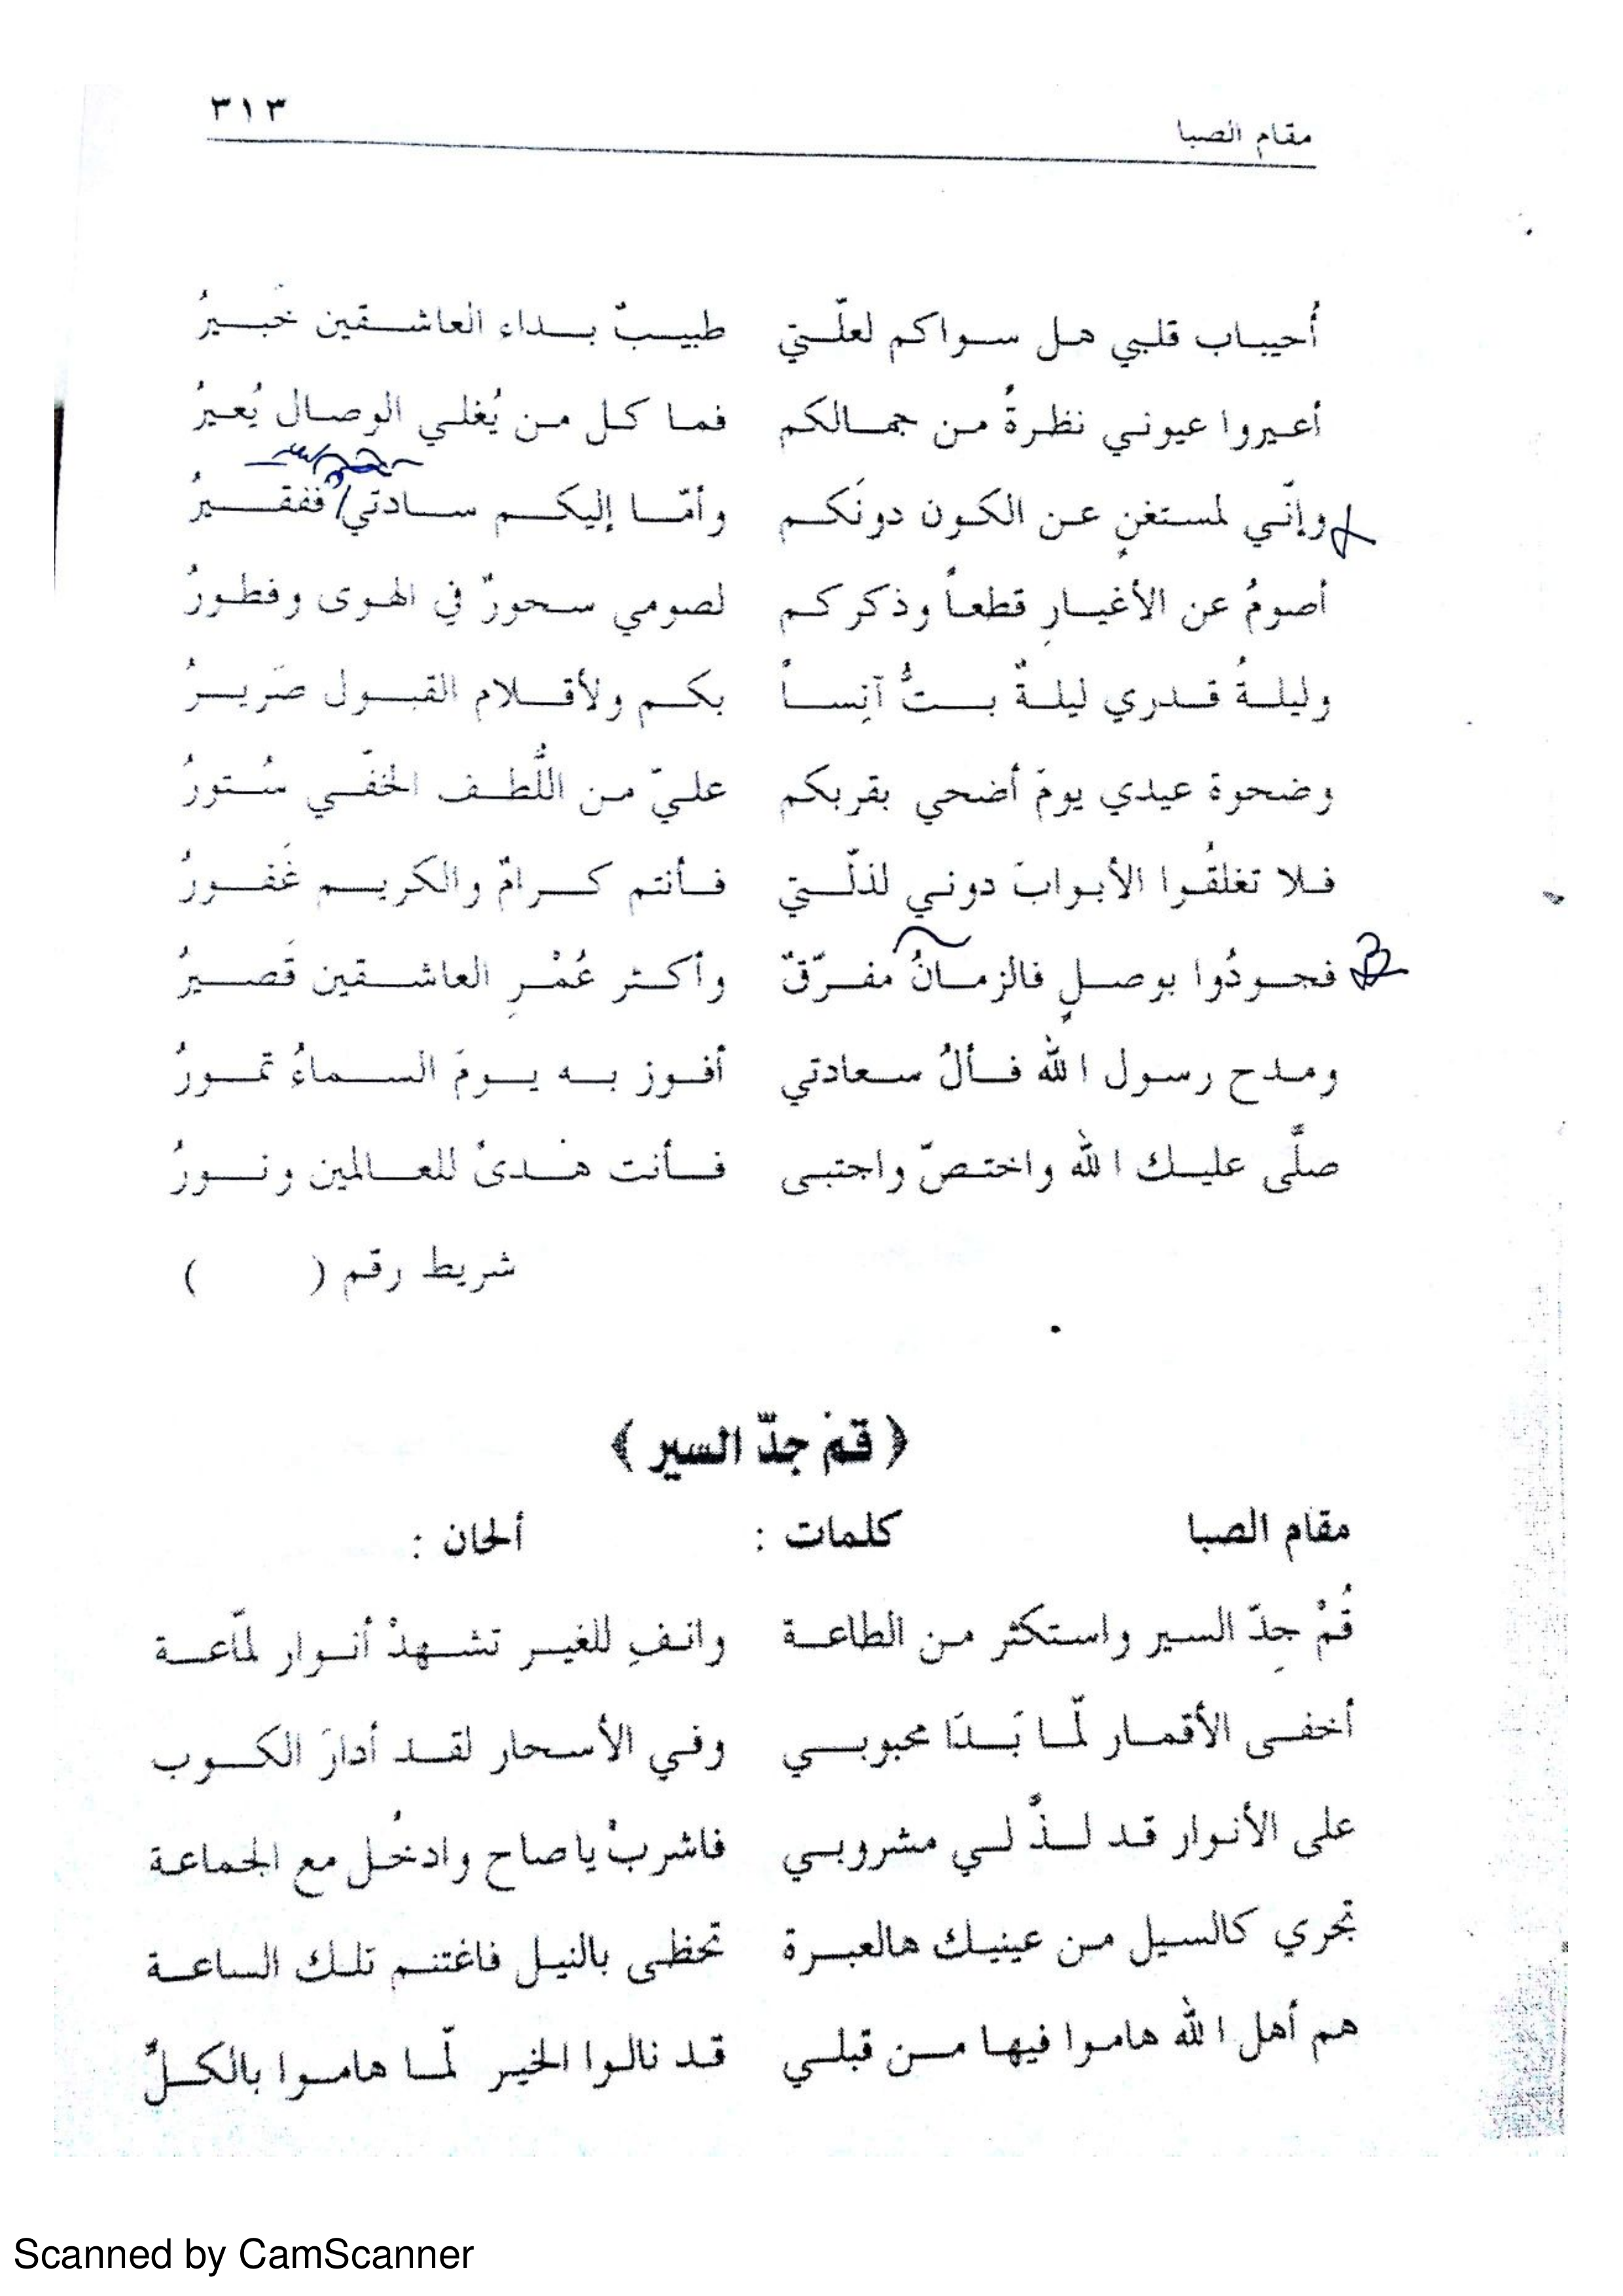 مقام الصبا ٣١٣
أُحيباب قلبي هل سواكم لعلّتي طبيبٌ بداء العاشقين خَبيرُ
أعيروا عيوني نظرةً من جمالكم فما كل من يُغلي الوصال يُعيرُ
وإنّي لمستغنٍ عن الكون دونَكم وأمّا إليكم سادتي ففقيرُ
أصومُ عن الأغيارِ قطعاً وذكركم لصومي سحورٌ في الهوى وفطورُ
وليلةُ قدري ليلةٌ بتُّ آنِساً بكم ولأقلام القبول صَريرُ
وضحوة عيدي يومَ أضحي بقربكم عليّ من اللُّطف الخفّي سُتورُ
فلا تغلقُوا الأبوابَ دوني لذلّتي فأنتم كرامٌ والكريم غَفورُ
فجودُوا بوصلٍ فالزمانُ مفرّقٌ وأكثر عُمْرِ العاشقين قَصيرُ
ومدح رسول الله فألُ سعادتي أفوز به يومَ السماءُ تمورُ
صلَّى عليك الله واختصّ واجتبى فأنت هُدىً للعالمين ونورُ
شريط رقم ( )
﴿ قمْ جدّ السير ﴾
مقام الصبا كلمات : ألحان :
قُمْ جِدّ السير واستكثر من الطاعة وانفِ للغير تشهدْ أنوار لمّاعة
أخفى الأقمار لمّا بَدَا محبوبي وفي الأسحار لقد أدارَ الكوب
على الأنوار قد لذّ لي مشروبي فاشربْ ياصاح وادخُل مع الجماعة
تجري كالسيل من عينيك هالعبرة تحظى بالنيل فاغتنم تلك الساعة
هم أهل الله هاموا فيها من قبلي قد نالوا الخير لمّا هاموا بالكلِّ
Scanned by CamScanner